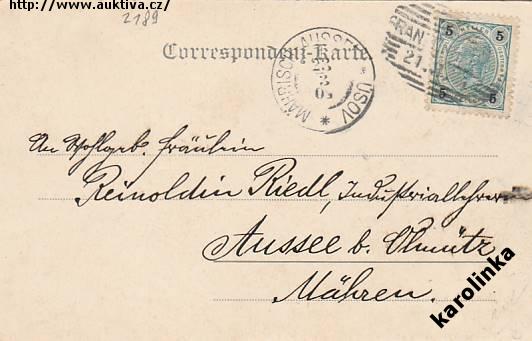 http://www.auktiva.cz/
2189
Correspondenz-Karte
MÄHRISCH AUSSEE * USOV *
5 5
5 5
21.
An Wohlgeb. Fräulein
Reinoldin Riedl, Industriallehrer
Aussee b. Olmütz
Mähren.
karolinka